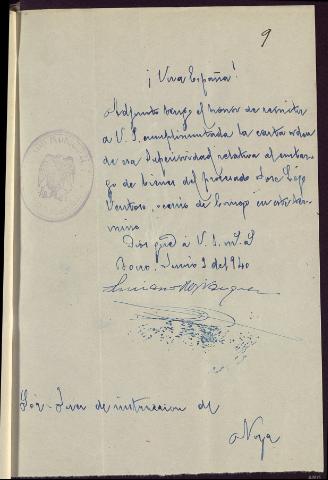 9
¡Viva España!
Adjunto tengo el honor de remitir
a V. S. cumplimentada la carta orden
de esa Superioridad relativa al embar-
go de bienes del procesado Jose Lojo
Ventoso, vecino de en este tér-
mino.
Dios gde a V. S. m. a.
Boiro, Junio 2 del 1940
Sor. Juez de instruccion de
Noya